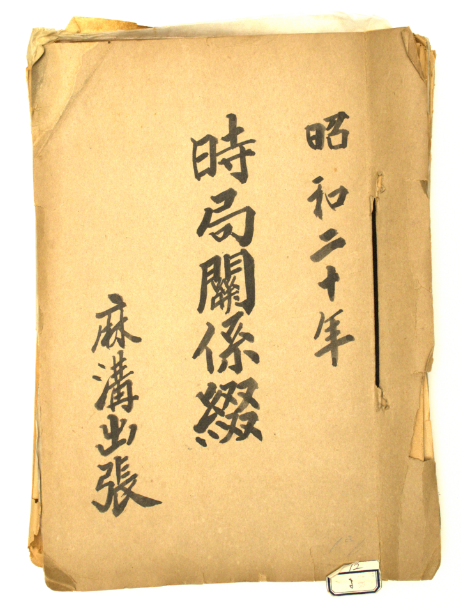 昭和二十年
時局關係綴
麻溝出張
12